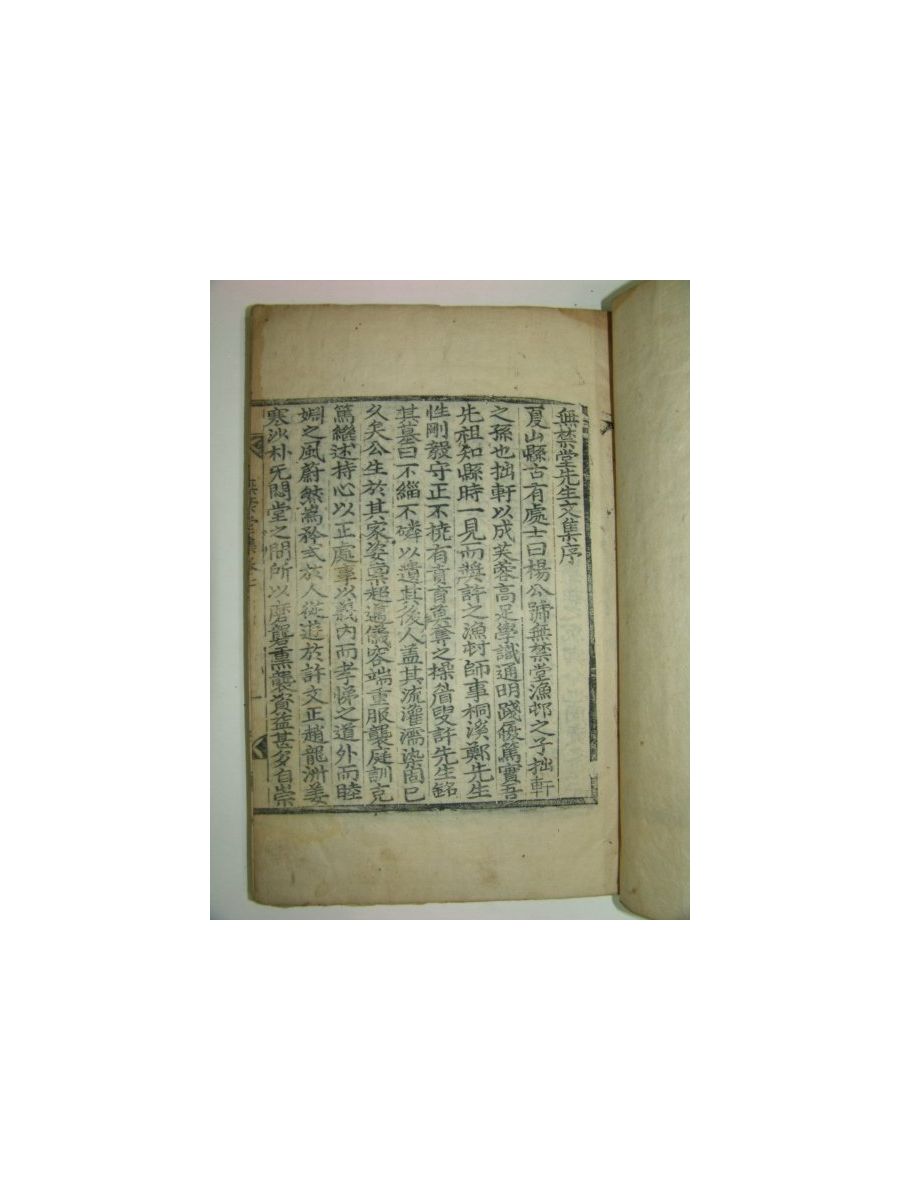 無禁堂先生文集序
夏山縣古有處士曰楊公號無禁堂漁邨之子拙軒
之孫也拙軒以成芙蓉高足學識通明踐履篤實吾
先祖知縣時一見而獎許之漁邨師事桐溪鄭先生
性剛毅守正不撓有賁育莫奪之操眉叟許先生銘
其墓曰不緇不磷以遺其後人盖其流灌濡染固已
久矣公生於其家姿稟超邁儀容端重服襲庭訓克
篤繼述持心以正處事以義內而孝悌之道外而睦
婣之風蔚然爲矜式於人從遊於許文正趙龍洲姜
寒沙朴无悶堂之間所以磨礱熏襲資益甚多自崇
無禁堂集